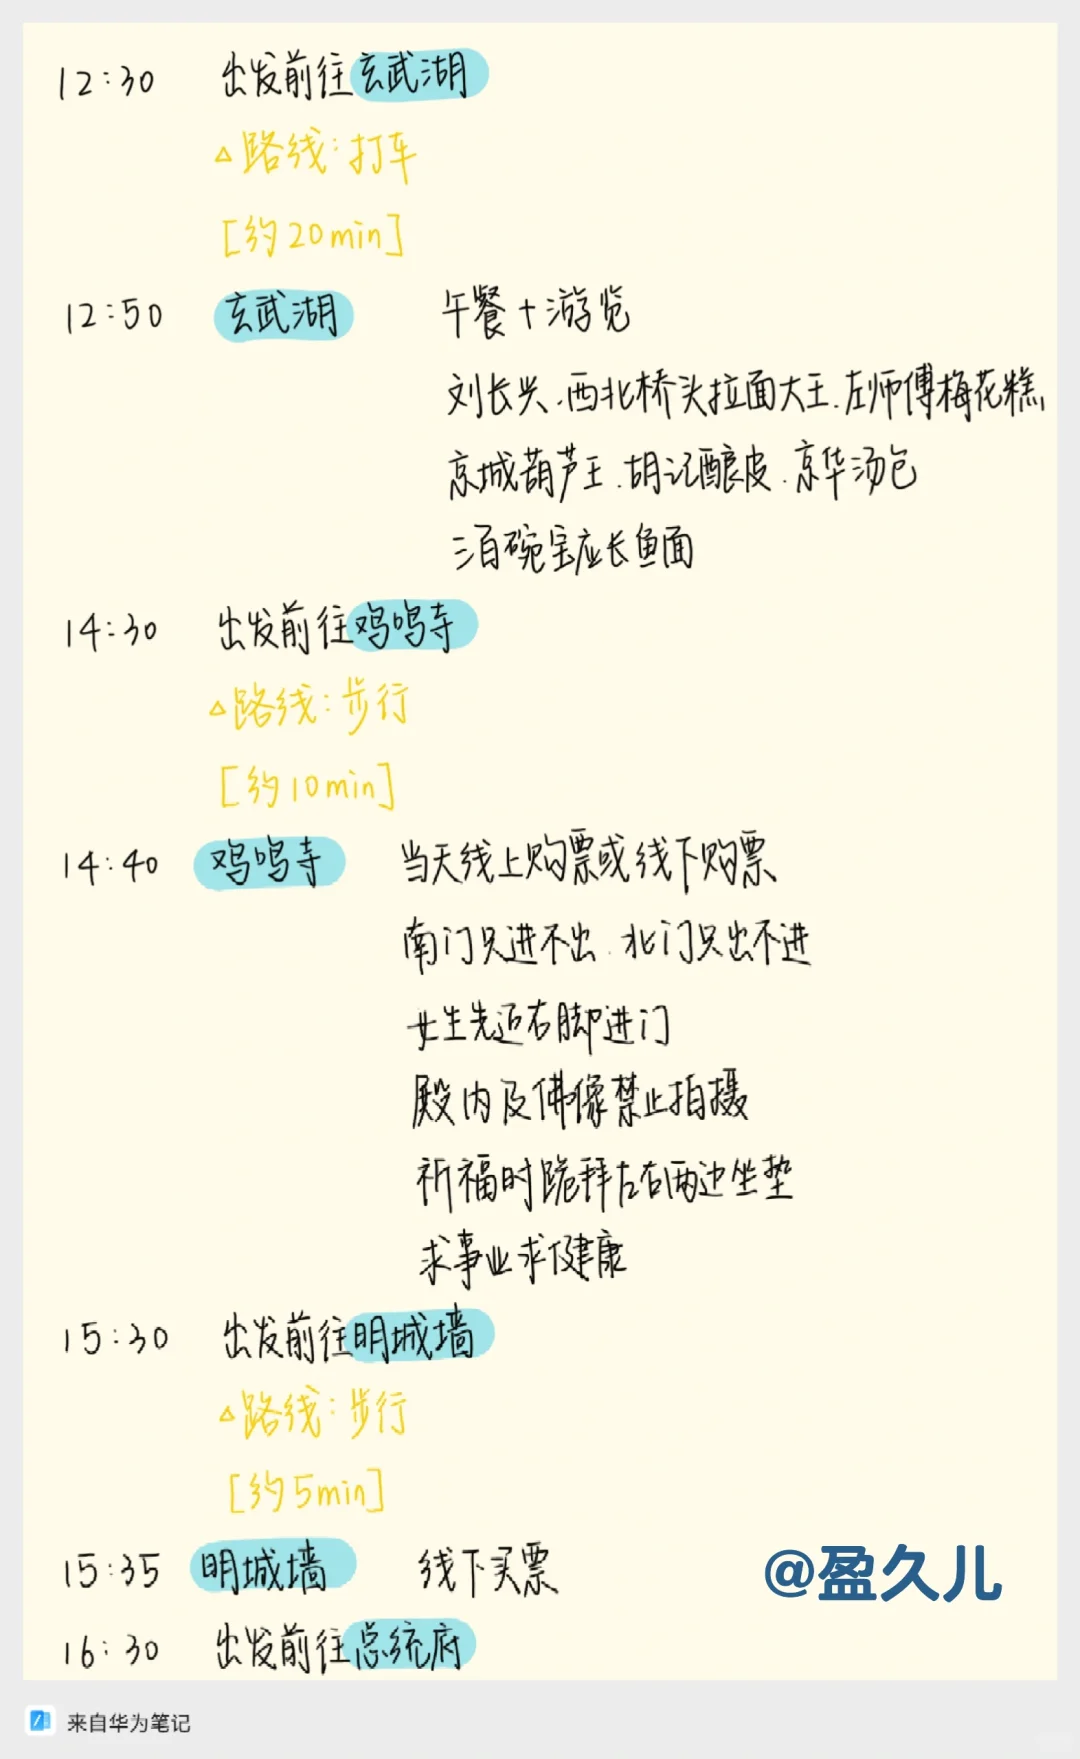 12:30 出发前往玄武湖
△路线:打车
[约20min]
12:50 玄武湖 午餐+游览
刘长兴、西北桥头拉面大王、左师傅梅花糕、
京城葫芦王、胡记酿皮、京华汤包
三百碗宝应长鱼面
14:30 出发前往鸡鸣寺
△路线:步行
[约10min]
14:40 鸡鸣寺 当天线上购票或线下购票
南门只进不出、北门只出不进
女生先迈右脚进门
殿内及佛像禁止拍摄
祈福时跪拜左右两边坐垫
求事业求健康
15:30 出发前往明城墙
△路线:步行
[约5min]
15:35 明城墙 线下买票
@盈久儿
16:30 出发前往总统府
来自华为笔记